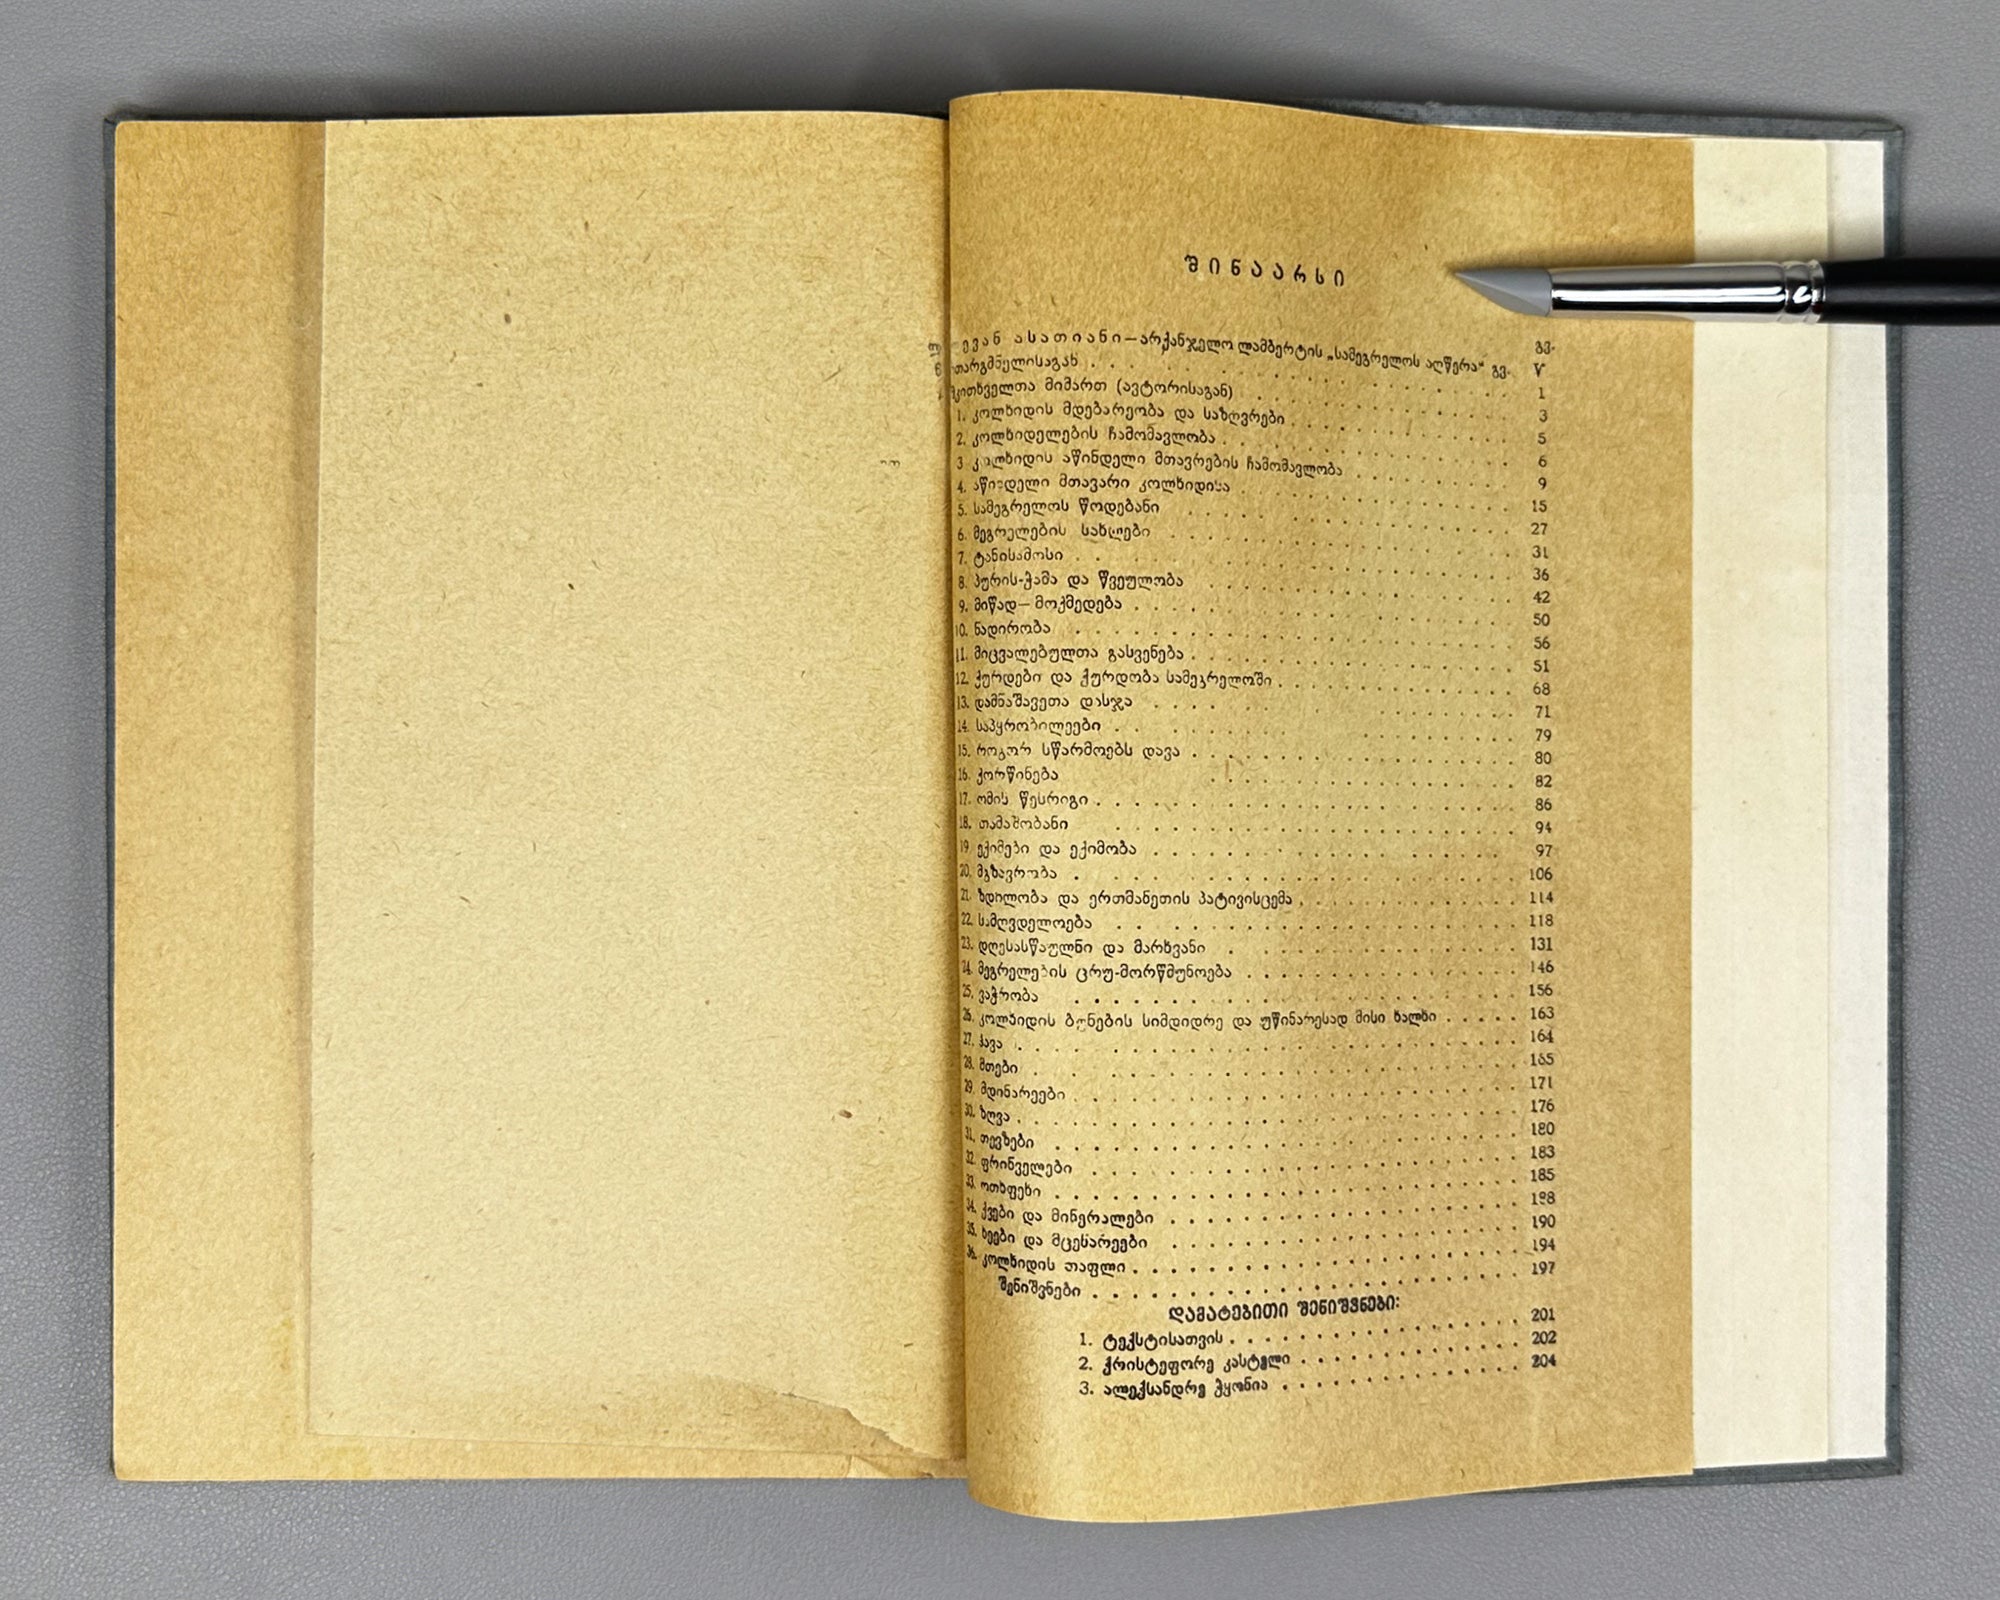 შინაარსი
გვ.
ევან ასათიანი—არქანჯელო ლამბერტის „სამეგრელოს აღწერა“ გვ. V
თარგმნელისაგან . . . . . 1
მკითხველთა მიმართ (ავტორისაგან) . . . . . 3
1. კოლხიდის მდებარეობა და საზღვრები . . . . . 5
2. კოლხიდელების ჩამომავლობა . . . . . 6
3 კოლხიდის აწინდელი მთავრების ჩამომავლობა . . . . . 9
4. აწინდელი მთავარი კოლხიდისა . . . . . 15
5. სამეგრელოს წოდებანი . . . . . 27
6. მეგრელების სახლები . . . . . 31
7. ტანისამოსი . . . . . 36
8. პურის-ჭამა და წვეულობა . . . . . 42
9. მიწად—მოქმედება . . . . . 50
10. ნადირობა . . . . . 56
11. მიცვალებულთა გასვენება . . . . . 51
12. ქურდები და ქურდობა სამეგრელოში . . . . . 68
13. დამნაშავეთა დასჯა . . . . . 71
14. საპყრობილეები . . . . . 79
15. როგორ სწარმოებს დავა . . . . . 80
16. ქორწინება . . . . . 82
17. ომის წესრიგი . . . . . 86
18. თამაშობანი . . . . . 94
19 ექიმები და ექიმობა . . . . . 97
20. მგზავრობა . . . . . 106
21. ზდილობა და ერთმანეთის პატივისცემა . . . . . 114
22. სამღვდელოება . . . . . 118
23. დღესასწაულნი და მარხვანი . . . . . 131
24. მეგრელების ცრუ-მორწმუნოება . . . . . 146
25. ვაჭრობა . . . . . 156
26. კოლხიდის ბუნების სიმდიდრე და უწინარესად მისი ხალხი . . . . . 163
27. ჰავა . . . . . 164
28. მთები . . . . . 165
29. მდინარეები . . . . . 171
30. ზღვა . . . . . 176
31. თევზები . . . . . 180
32. ფრინველები . . . . . 183
33. ოთხფეხი . . . . . 185
34. ქვები და მინერალები . . . . . 188
35. ხეები და მცენარეები . . . . . 190
36. კოლხიდის თაფლი . . . . . 194
შენიშვნები . . . . . 197
დამატებითი შენიშვნები:
1. ტექსტისათვის . . . . . 201
2. ქრისტეფორე კასტელი . . . . . 202
3. ალექსანდრე ჭყონია . . . . . 204